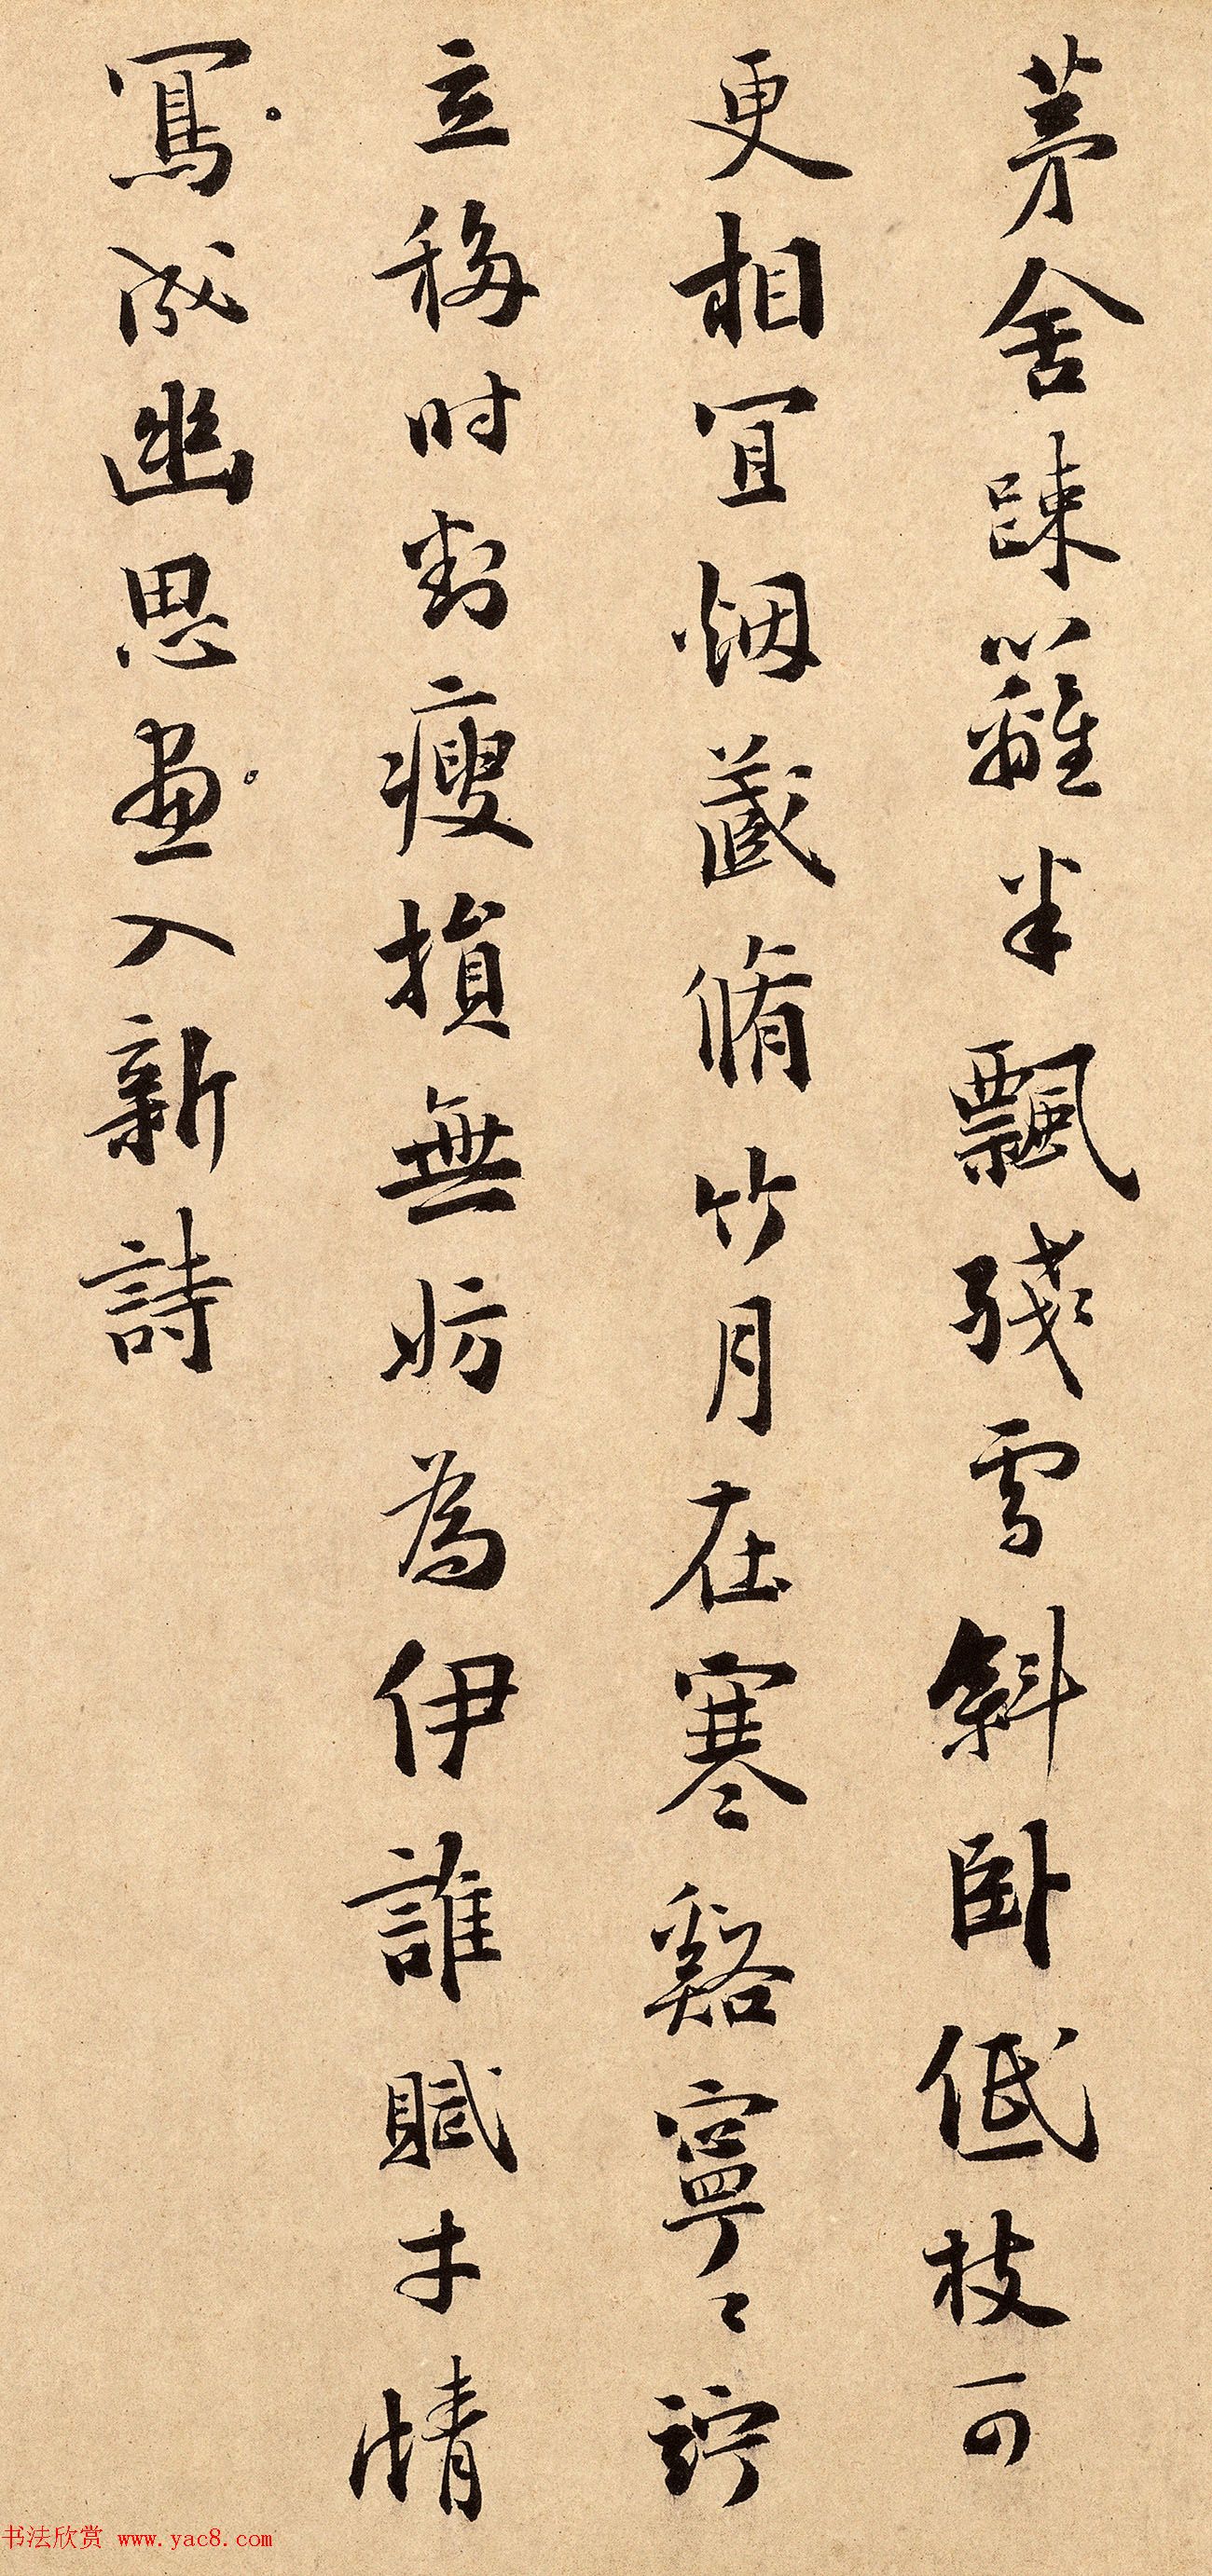 茅舍疎籬半飄殘雪斜卧低枝可
更相宜烟藏脩竹月在寒谿寧〻竚
立移时判瘦損無妨為伊誰賦才情
寫成幽思畫入新詩
书法欣赏 www.yac8.com